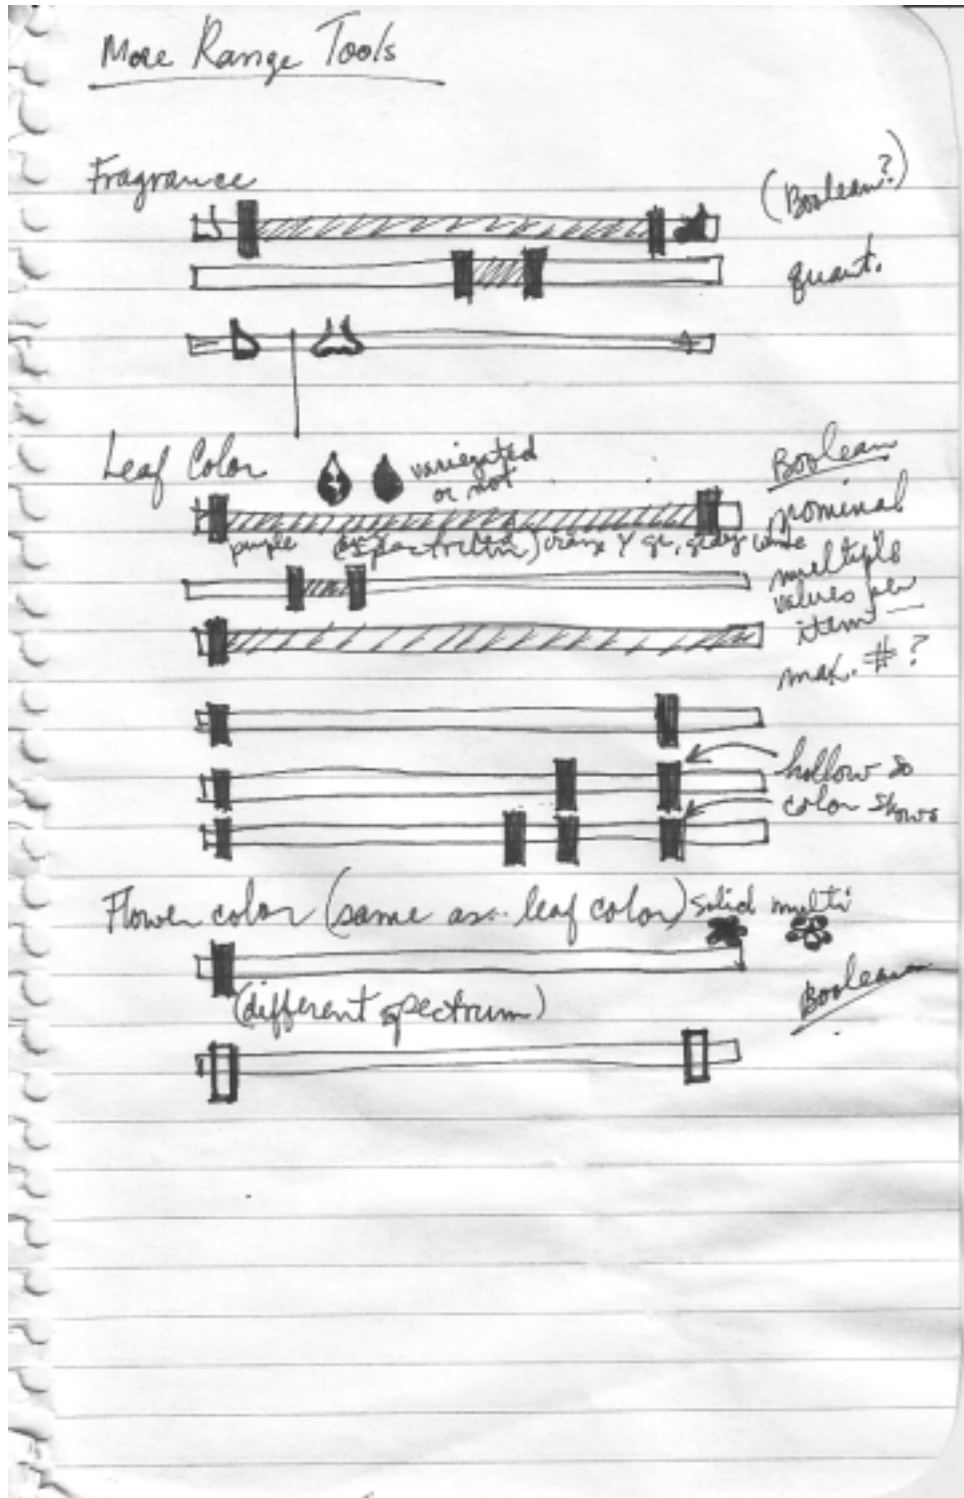 More Range Tools
Fragrance
(Boolean?)
quant.
Leaf Color
variegated
or not
Boolean
nominal
purple (spectrum) orange Y gr, gray
multiple
values per
item —
max. # ?
hollow so
color shows
Flower color (same as leaf color) solid multi
Boolean
(different spectrum)